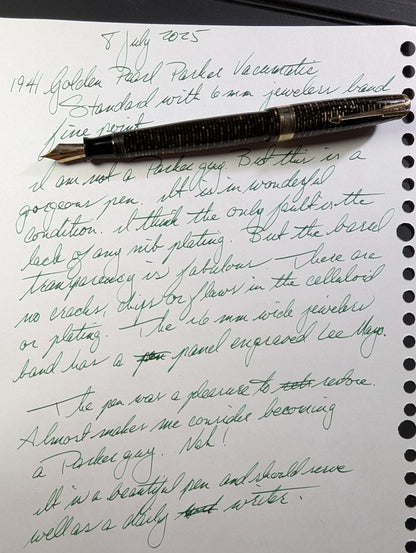 8 July 2025
1941 Golden Pearl Parker Vacumatic
Standard with 6 mm jewelers band
fine point
I am not a Parker guy. But this is a
gorgeous pen. It is in wonderful
condition. I think the only fault is the
lack of any nib plating. But the barrel
transparency is fabulous. There are
no cracks, chips or flaws in the celluloid
or plating. The 16 mm wide jewelers
band has a pen panel engraved Lee Mayo.
The pen was a pleasure to restore.
Almost makes me consider becoming
a Parker guy. Nah!
It is a beautiful pen and should serve
well as a daily writer.